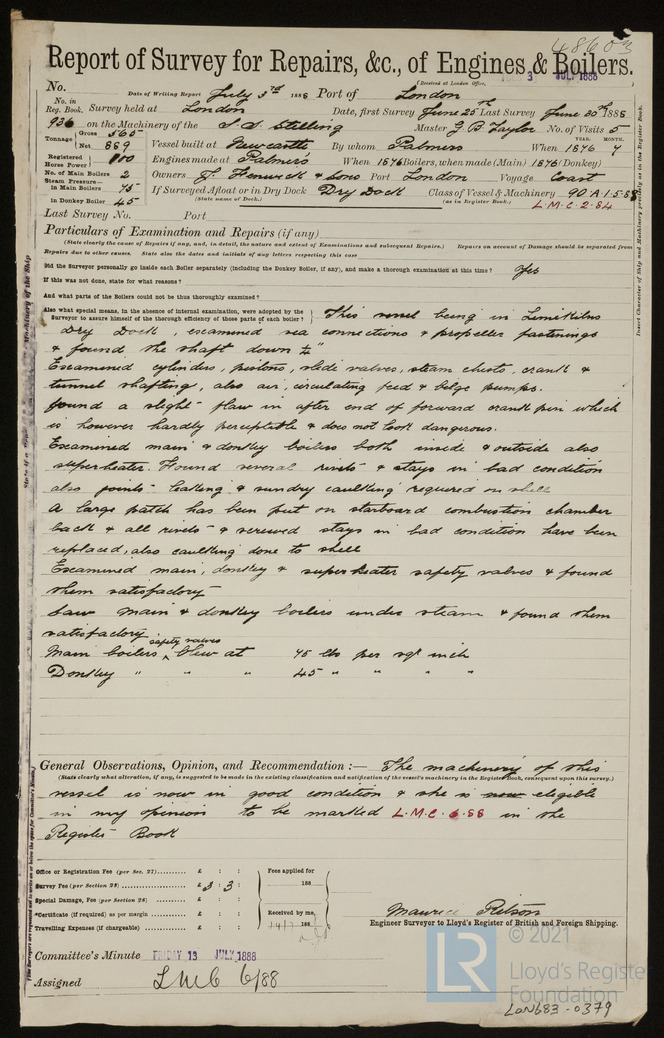 48603
Report of Survey for Repairs, &c., of Engines & Boilers.
(Received at London Office, 3 JULY 1888
No. Date of Writing Report July 3rd 1888 Port of London
No. in Reg. Book. Survey held at London Date, first Survey June 25th Last Survey June 30th 1888
936 on the Machinery of the S.S. Stelling Master J B Taylor No. of Visits 5
Tonnage Gross 565 Net 889 Vessel built at Newcastle By whom Palmers When 1876 YEAR. MONTH. 7
Registered Horse Power Engines made at Palmers When 1876 Boilers, when made (Main) 1876 (Donkey)
No. of Main Boilers 2 Owners J. Fenwick & Sons Port London Voyage Coast
Steam Pressure— in Main Boilers 75 If Surveyed Afloat or in Dry Dock Dry Dock Class of Vessel & Machinery 90 A 1.5.88
in Donkey Boiler 45 (State name of Dock.) (as in Register Book.) L.M.C. 2.84
Last Survey No. Port
Particulars of Examination and Repairs (if any)
(State clearly the cause of Repairs if any, and, in detail, the nature and extent of Examinations and subsequent Repairs.) Repairs on account of Damage should be separated from
Repairs due to other causes. State also the dates and initials of any letters respecting this case
Did the Surveyor personally go inside each Boiler separately (including the Donkey Boiler, if any), and make a thorough examination at this time? Yes
If this was not done, state for what reasons?
And what parts of the Boilers could not be thus thoroughly examined?
Also what special means, in the absence of internal examination, were adopted by the Surveyor to assure himself of the thorough efficiency of those parts of each boiler? This vessel being in Limekilns
Dry Dock, examined sea connections & propeller fastenings
& found the shaft down
Examined cylinders, pistons, slide valves, steam chests, crank &
tunnel shafting, also air, circulating feed & bilge pumps.
found a slight flaw in after end of forward crank pin which
is however hardly perceptible & does not look dangerous.
Examined main & donkey boilers both inside & outside also
superheater. Found several rivets & stays in bad condition
also joints leaking & sundry caulking required on shell
A large patch has been put on starboard combustion chamber
back & all rivets & screwed stays in bad condition have been
replaced, also caulking done to shell
Examined main, donkey & superheater safety valves & found
them satisfactory
Saw main & donkey boilers under steam & found them
satisfactory
Main boilers safety valves blew at 75 lbs per sqr inch
Donkey " " " 45 " " " "
General Observations, Opinion, and Recommendation :— The machinery of this
(State clearly what alteration, if any, is suggested to be made in the existing classification and notification of the vessel's machinery in the Register Book, consequent upon this survey.)
vessel is now in good condition & she is now eligible
in my opinion to be marked L.M.C. 6.88 in the
Register Book
Office or Registration Fee (per Sec. 27) £ : :
Survey Fee (per Section 28) £ 3 : 3 :
Special Damage, Fee (per Section 28) £ : :
*Certificate (if required) as per margin £ : :
Travelling Expenses (if chargeable) £ : :
Fees applied for
188
Received by me,
188
Engineer Surveyor to Lloyd's Register of British and Foreign Shipping.
Committee's Minute FRIDAY 13 JULY 1888
Assigned LMC 6/88
LR © 2021
Lloyd's Register
Foundation
LON683-0379